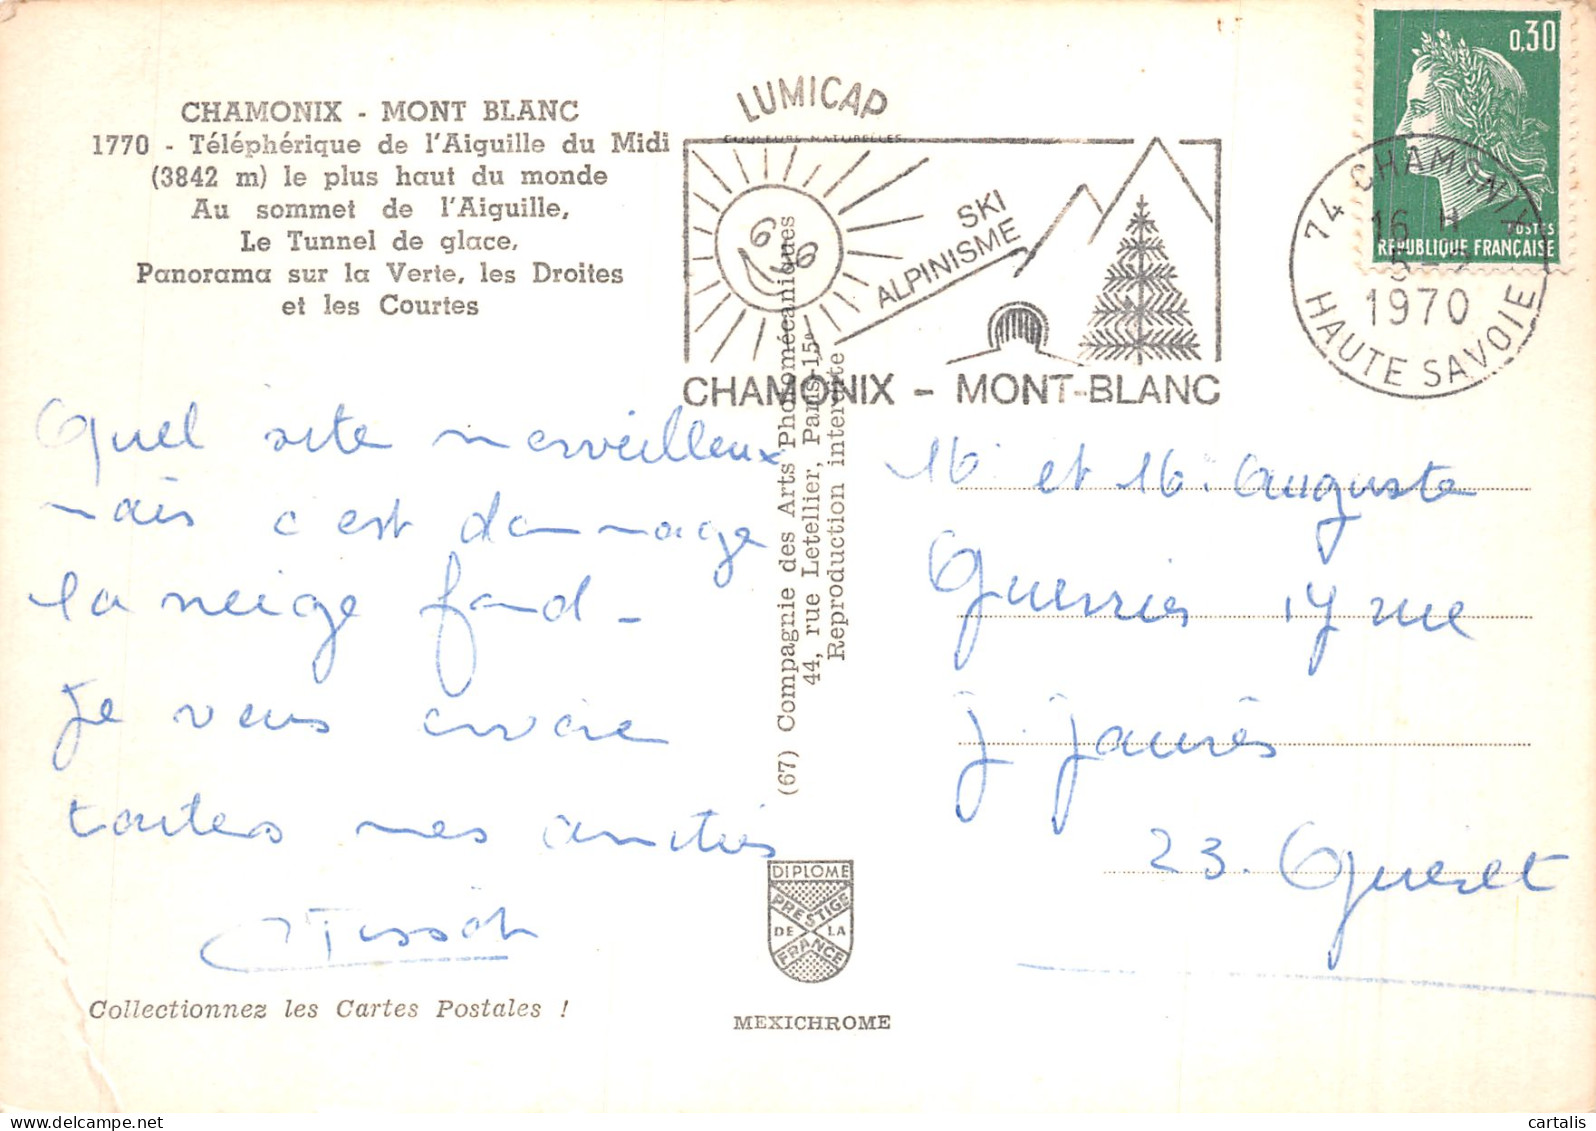 CHAMONIX - MONT BLANC
1770 - Téléphérique de l'Aiguille du Midi
(3842 m) le plus haut du monde
Au sommet de l'Aiguille,
Le Tunnel de glace,
Panorama sur la Verte, les Droites
et les Courtes
Quel site merveilleux
mais c'est dommage
la neige fond -
Je vous envoie
toutes mes amitiés
Collectionnez les Cartes Postales !
LUMICAP
COULEURS NATURELLES
SKI
ALPINISME
CHAMONIX - MONT-BLANC
(67) Compagnie des Arts Photomécaniques
44, rue Letellier, Paris-15e
Reproduction interdite
DIPLOME
PRESTIGE
DE LA
FRANCE
MEXICHROME
0,30
POSTES
REPUBLIQUE FRANÇAISE
74 CHAMONIX
16 H
1970
HAUTE SAVOIE
et Auguste
rue
J. Jaurès
23. Gueret
cartalis